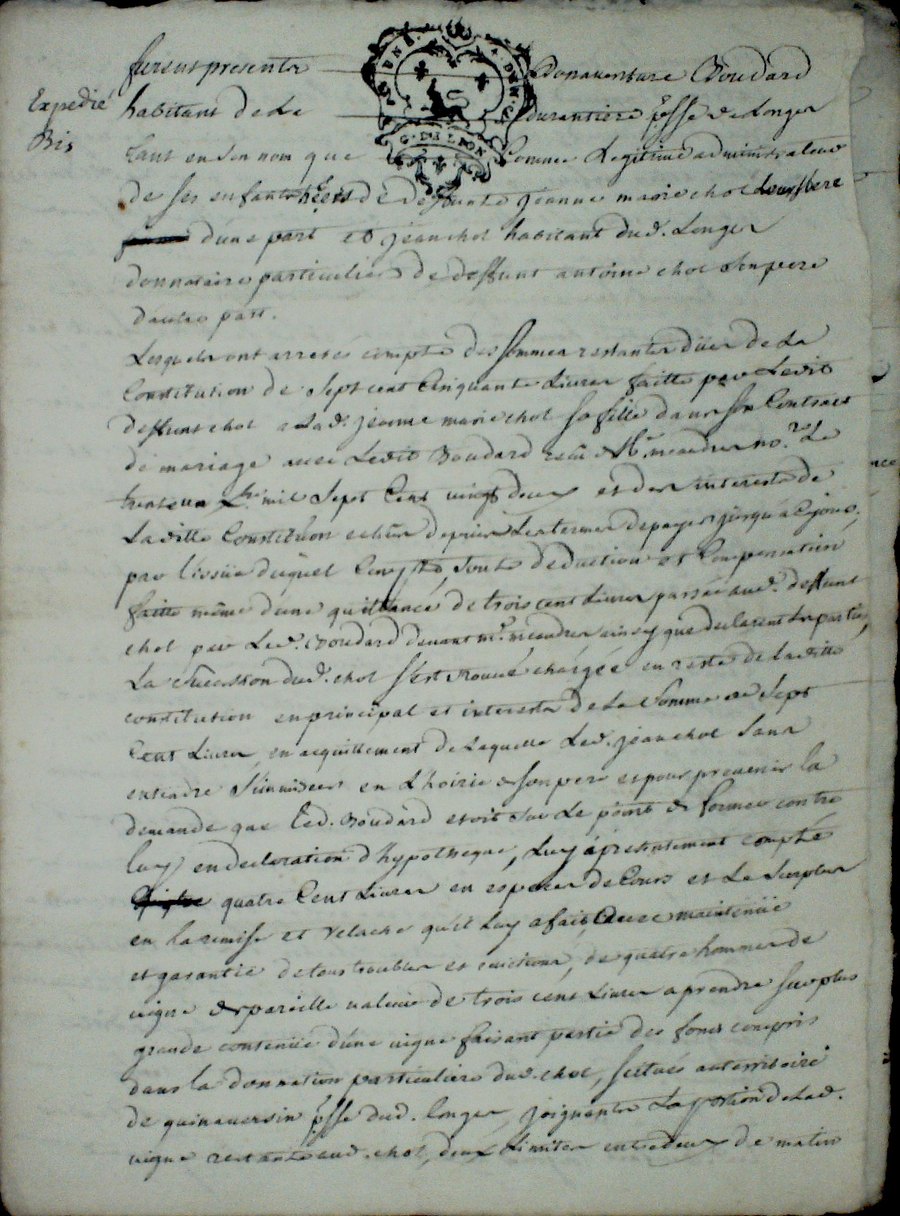 Expedié
Bis
G. DE LYON
furent presents Bonaventure Boudard
habitant de la durantiere psse de Longes
tant en son nom que comme Legitime administrateur
de ses enfants & de deffunte Jeanne marie chol Leur Mere
d'une part et Jean chol habitant dud. Longes
donnataire particulier de deffunt antoine chol son pere
d'autre part.
Lesquels ont arretés compte des sommes restantes düer de La
Constitution de Sept cent Cinquante Livres faitte par Ledit
deffunt chol a Lad. jeanne marie chol sa fille dans son Contract
de mariage avec Ledit Boudard recû Me. no.re Le
trente un mil Sept Cent vingt deux et des interests de
Laditte Constitution echus depuis Les termes de payer jusqu'à Ce jour,
par l'issüe duquel Compte, toute deduction et Compensation
faitte même d'une quittance de trois cent Livres passée aud. deffunt
chol par Led. Boudard devant me. ainsy que declarent Les parties,
La succession dud. chol s'est trouvé chargée en reste de Laditte
constitution en principal et interests de La somme de Sept
Cent Livres, en acquittement de Laquelle Led. jean chol sans
entendre s'immiscer en L'hoirie de son pere et pour prevenir la
demande que Led. Boudard etoit sur Le point de former contre
luy en declaration d'hypotheque, Luy a presentement compté
quatre Cent Livres en especes de Cours et Le surplus
en la remise et relache qu'il Luy a fait, avec maintenüe
et garantie de tous troubles et evictions, de quatre hommes de
vigne de pareille valeur de trois cent Livres a prendre sur plus
grande contenüe d'une vigne faisant partie des fonds compris
dans la donnation particuliere dud. chol, scituée au territoire
de psse dud. Longes, joignants La portion de Lad.
vigne restante aud. chol, deux Limites entredeux de matin